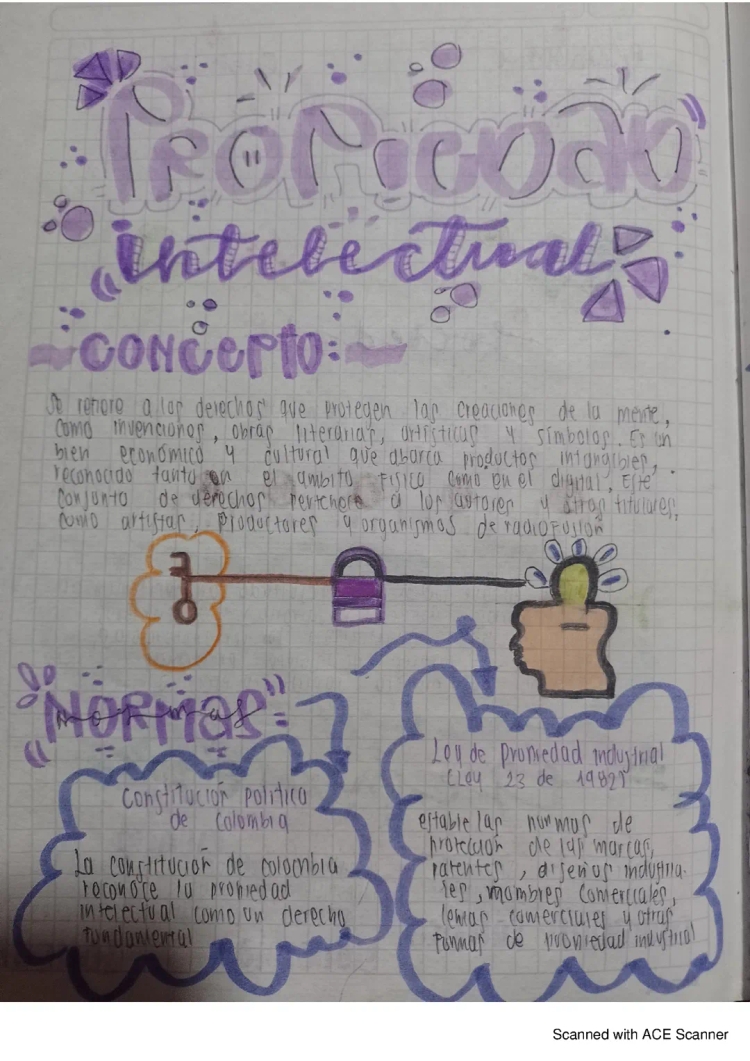 Propiedad
intelectual
concepto:
Se refiere a los derechos que protegen las creaciones de la mente,
como invenciones, obras literarias, artísticas y símbolos. Es un
bien económico y cultural que abarca productos intangibles,
reconocido tanto en el ambito Físico como en el digital. Este
conjunto de derechos pertenere a los autores y otros titulares,
como artistas, productores y organismos de radiofusión
Normas:
normas
Constitución politica
de Colombia
La constitución de colombia
reconose la propiedad
intelectual como un derecho
fundamental
Ley de propiedad industrial
(Ley 23 de 1982)
establece las normas de
protección de las marcas,
patentes, diseños industria-
les, mombres comerciales,
lemas comerciales y otras
formas de propiedad industrial
Scanned with ACE Scanner